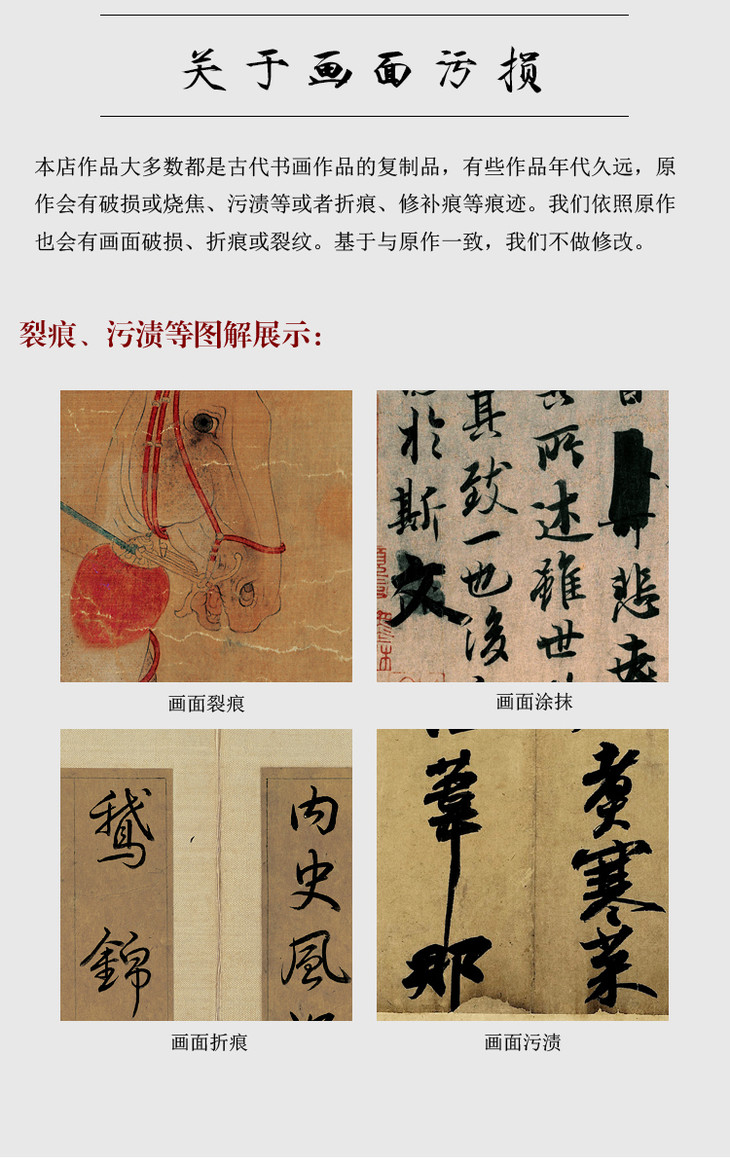 关于画面污损
本店作品大多数都是古代书画作品的复制品，有些作品年代久远，原
作会有破损或烧焦、污渍等或者折痕、修补痕等痕迹。我们依照原作
也会有画面破损、折痕或裂纹。基于与原作一致，我们不做修改。
裂痕、污渍等图解展示：
悲
所述雖世
其致一也後
於斯文
画面裂痕
画面涂抹
内史風
鵝錦
煮寒菜
葦那
画面折痕
画面污渍